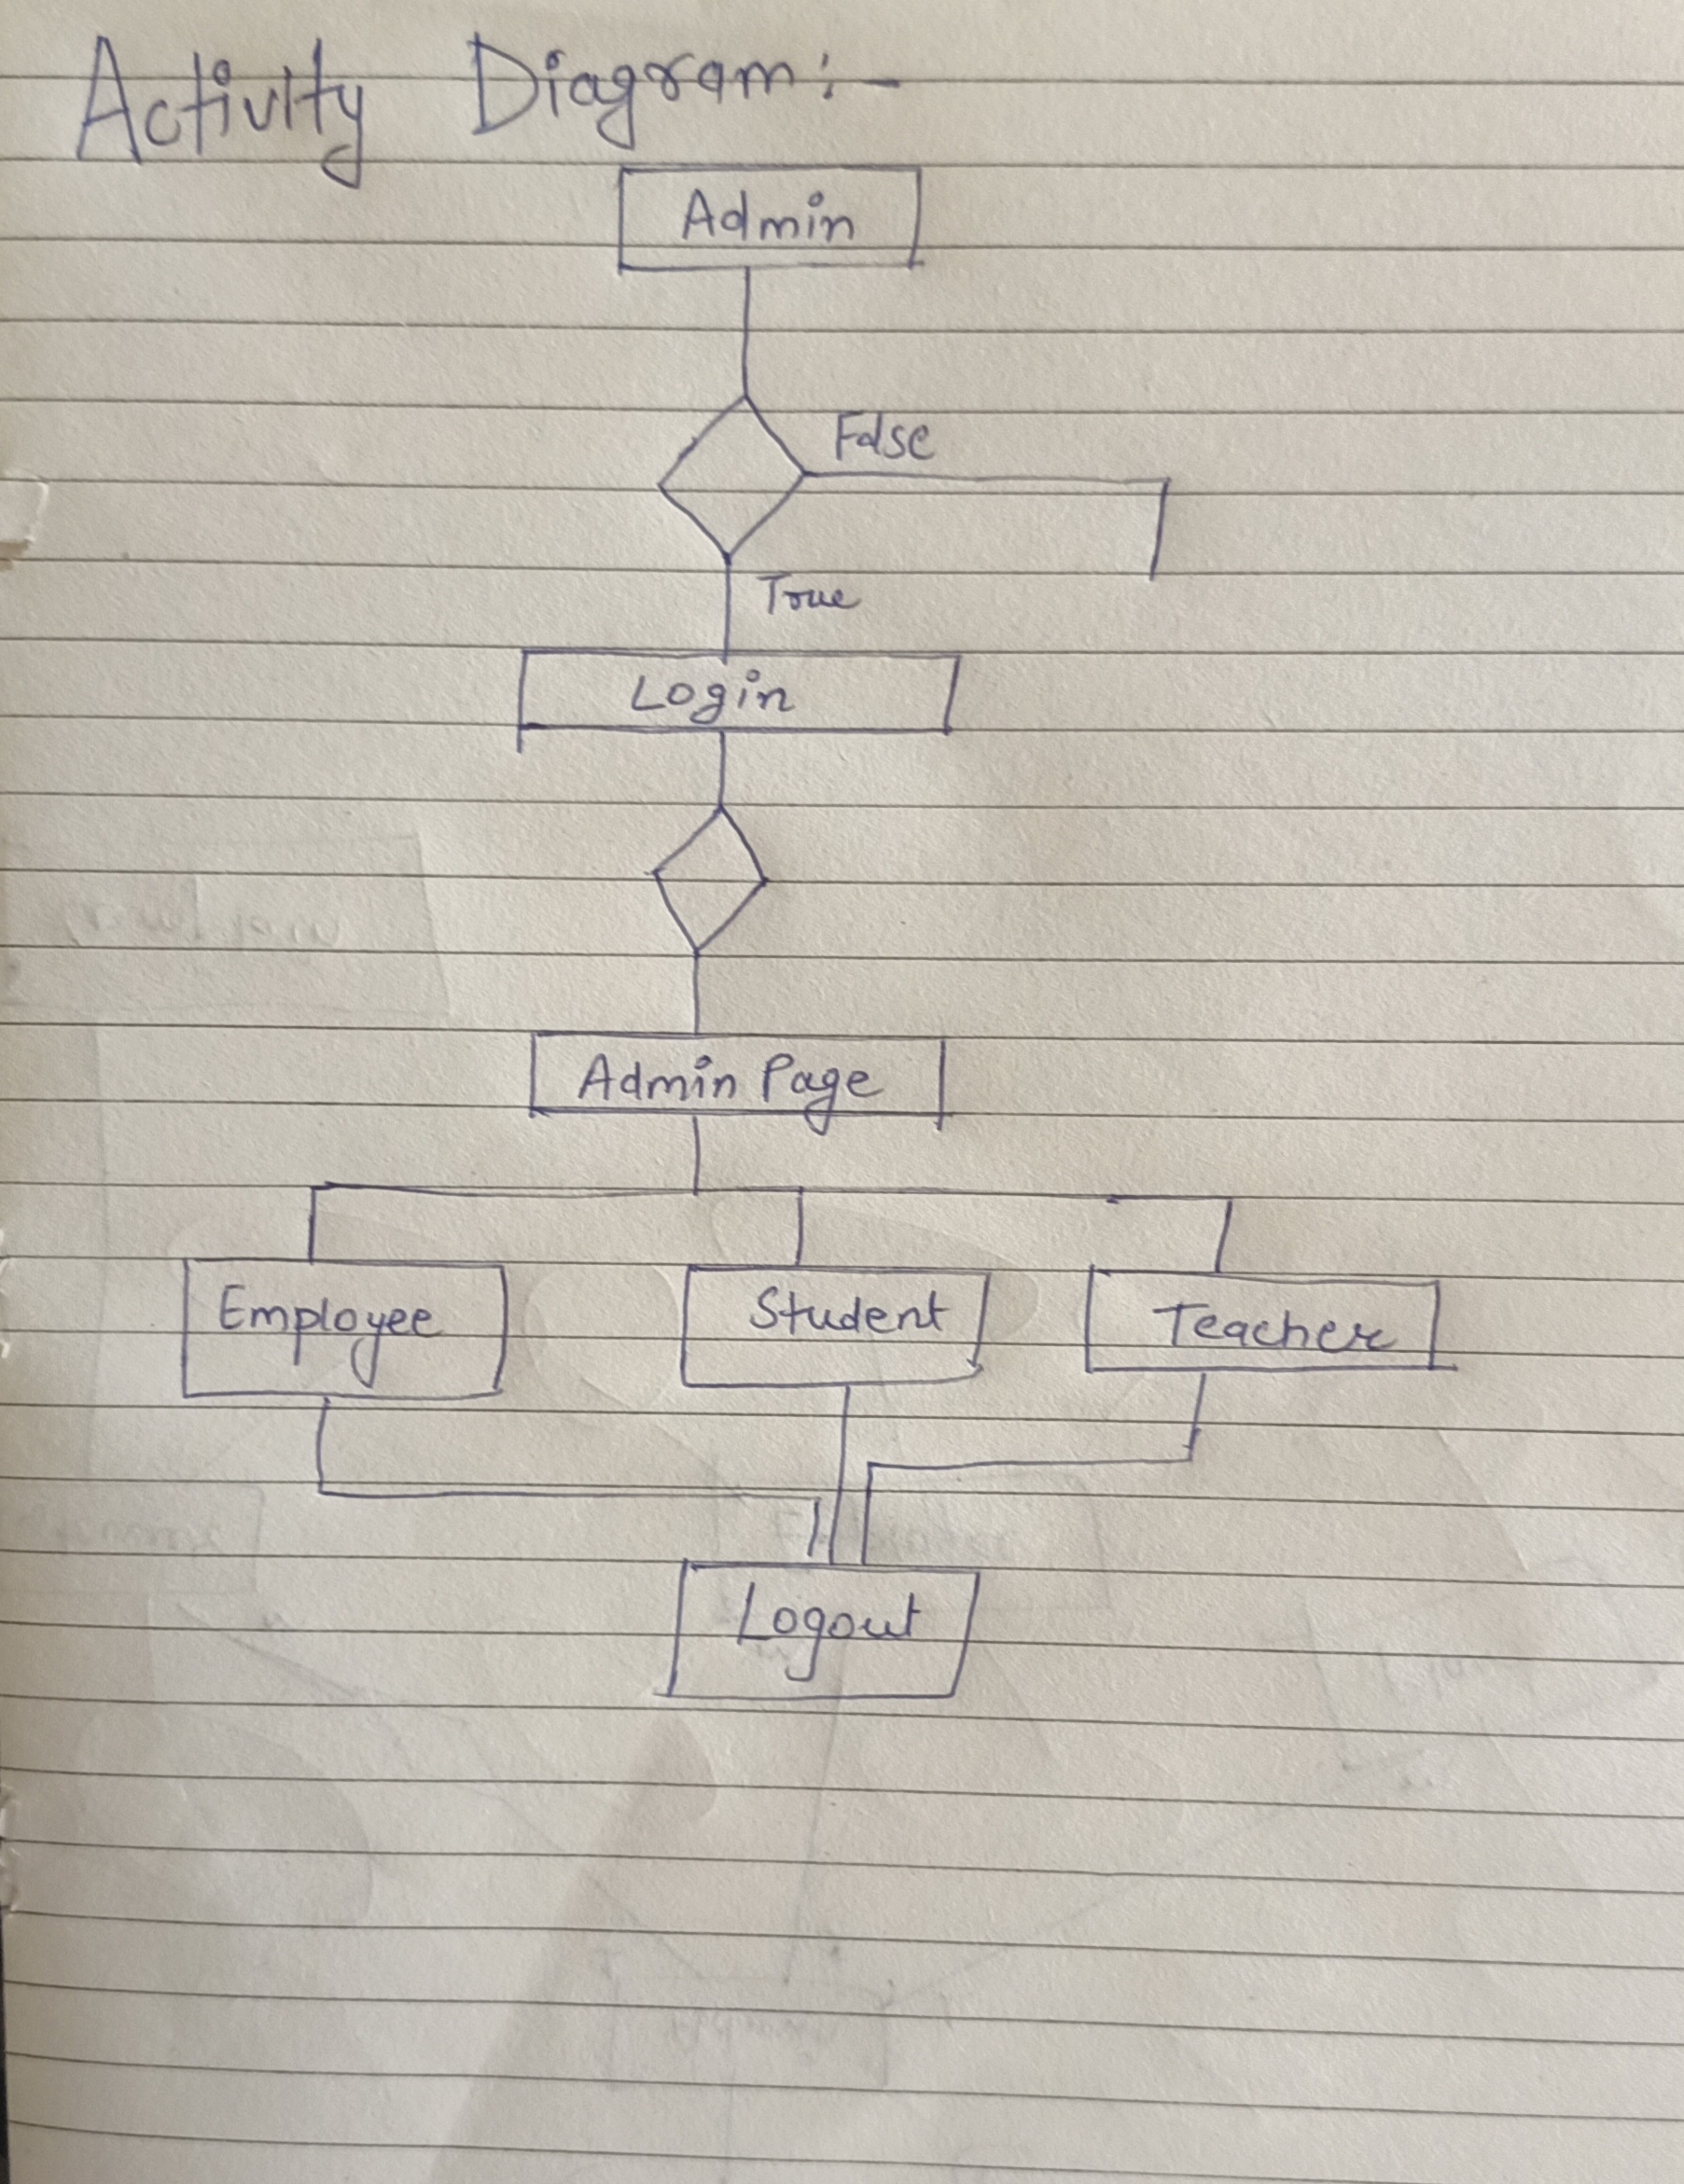 Activity Diagram:-
Admin
False
True
Login
Admin Page
Employee Student Teacher
Logout